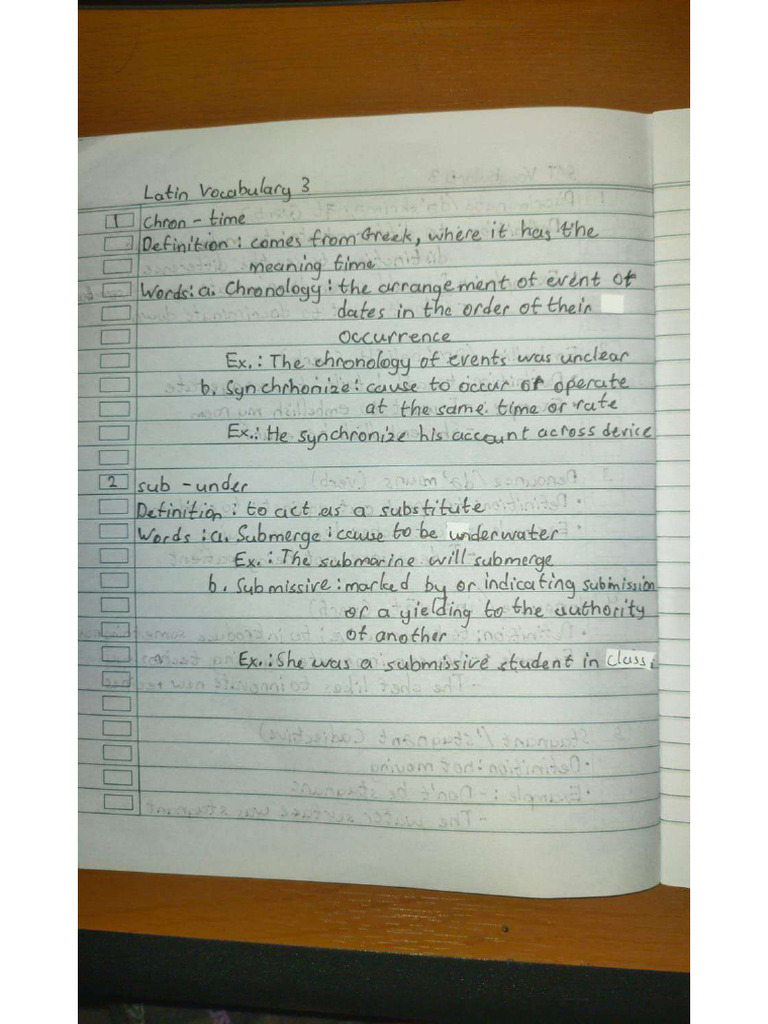 Latin Vocabulary 3
1 Chron - time
Definition : comes from Greek, where it has the
meaning time
Words: a. Chronology : the arrangement of event of
dates in the order of their
occurrence
Ex.: The chronology of events was unclear
b. Synchrhonize : cause to occur of operate
at the same time or rate
Ex.: He synchronize his account across device
2 sub - under
Definition : to act as a substitute
Words : a. Submerge : cause to be underwater
Ex. : The submarine will submerge
b. Submissive : marked by or indicating submission
or a yielding to the authority
of another
Ex. : She was a submissive student in class.